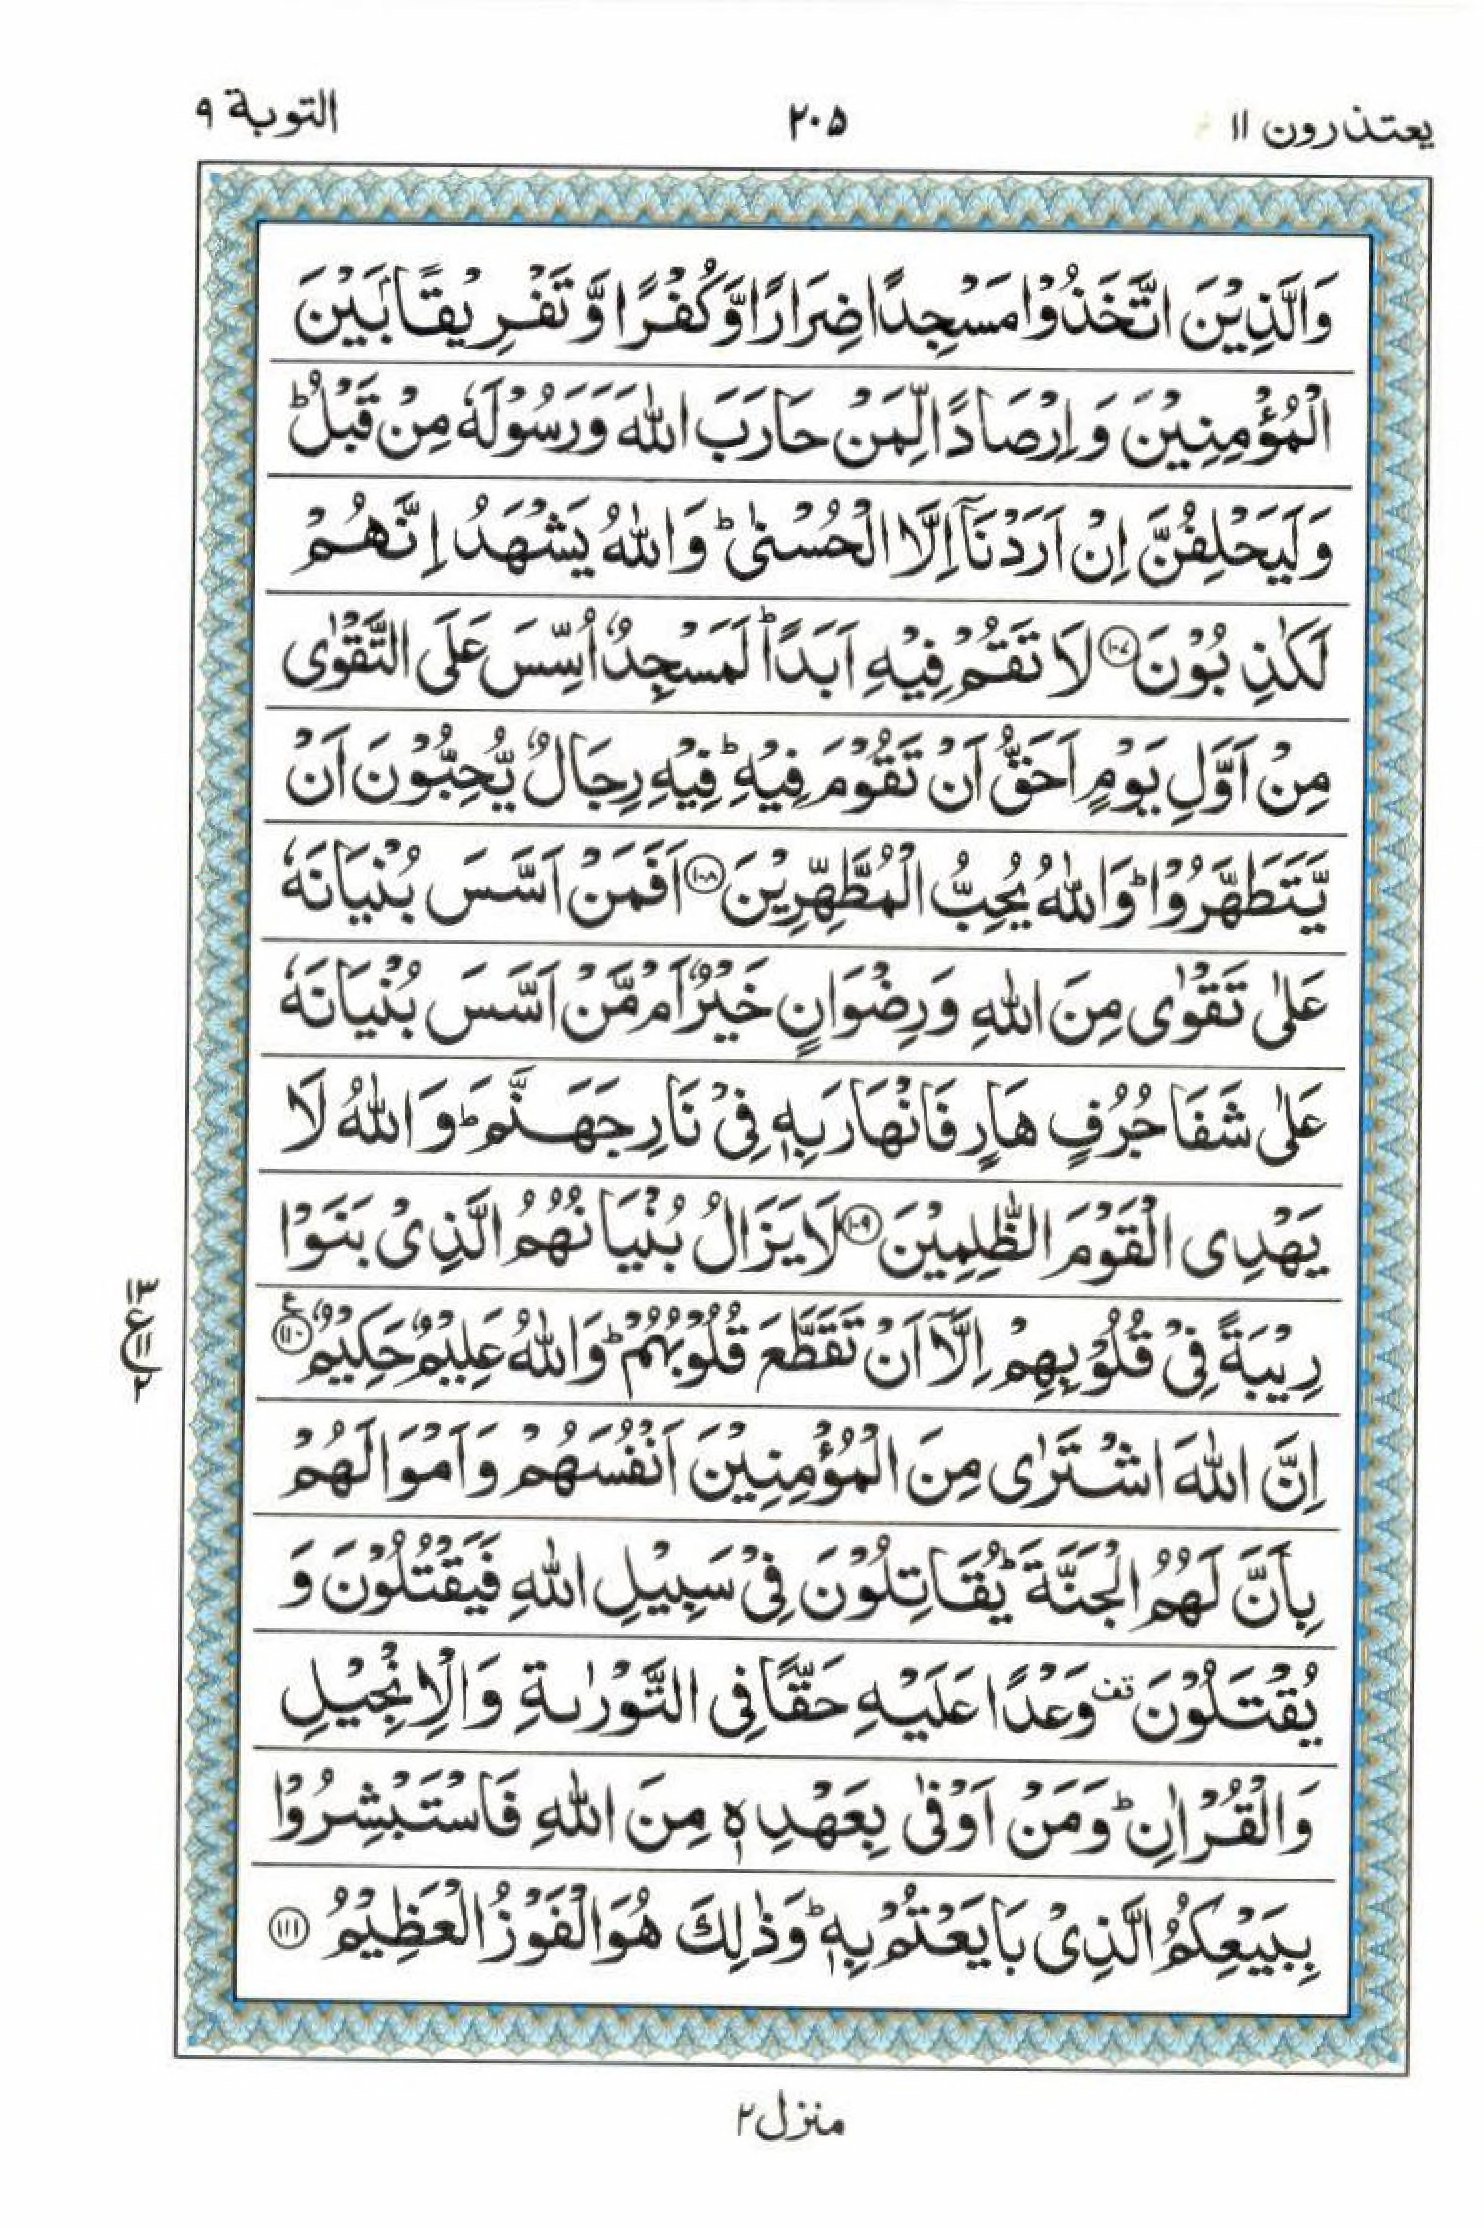 يعتذرون ١١ ٢٠٥ التوبة ٩
وَالَّذِيْنَ اتَّخَذُوْا مَسْجِدًا ضِرَارًا وَّكُفْرًا وَّ تَفْرِيْقًۢا بَيْنَ
الْمُؤْمِنِيْنَ وَ اِرْصَادًا لِّمَنْ حَارَبَ اللّٰهَ وَ رَسُوْلَهٗ مِنْ قَبْلُ ؕ
وَ لَيَحْلِفُنَّ اِنْ اَرَدْنَاۤ اِلَّا الْحُسْنٰى ؕ وَ اللّٰهُ يَشْهَدُ اِنَّهُمْ
لَكٰذِبُوْنَ ۝١٠٧ لَا تَقُمْ فِيْهِ اَبَدًا ؕ لَمَسْجِدٌ اُسِّسَ عَلَى التَّقْوٰى
مِنْ اَوَّلِ يَوْمٍ اَحَقُّ اَنْ تَقُوْمَ فِيْهِ ؕ فِيْهِ رِجَالٌ يُّحِبُّوْنَ اَنْ
يَّتَطَهَّرُوْا ؕ وَاللّٰهُ يُحِبُّ الْمُطَّهِّرِيْنَ ۝١٠٨ اَفَمَنْ اَسَّسَ بُنْيَانَهٗ
عَلٰى تَقْوٰى مِنَ اللّٰهِ وَ رِضْوَانٍ خَيْرٌ اَمْ مَّنْ اَسَّسَ بُنْيَانَهٗ
عَلٰى شَفَا جُرُفٍ هَارٍ فَانْهَارَ بِهٖ فِيْ نَارِ جَهَنَّمَ ؕ وَ اللّٰهُ لَا
يَهْدِى الْقَوْمَ الظّٰلِمِيْنَ ۝١٠٩ لَا يَزَالُ بُنْيَانُهُمُ الَّذِىْ بَنَوْا
رِيْبَةً فِيْ قُلُوْبِهِمْ اِلَّاۤ اَنْ تَقَطَّعَ قُلُوْبُهُمْ ؕ وَاللّٰهُ عَلِيْمٌ حَكِيْمٌ ۝١١٠ ع
١٣
ع ١١
٢
اِنَّ اللّٰهَ اشْتَرٰى مِنَ الْمُؤْمِنِيْنَ اَنْفُسَهُمْ وَ اَمْوَالَهُمْ
بِاَنَّ لَهُمُ الْجَنَّةَ ؕ يُقَاتِلُوْنَ فِيْ سَبِيْلِ اللّٰهِ فَيَقْتُلُوْنَ وَ
يُقْتَلُوْنَ قف وَعْدًا عَلَيْهِ حَقًّا فِى التَّوْرٰىةِ وَ الْاِنْجِيْلِ
وَالْقُرْاٰنِ ؕ وَ مَنْ اَوْفٰى بِعَهْدِهٖ مِنَ اللّٰهِ فَاسْتَبْشِرُوْا
بِبَيْعِكُمُ الَّذِىْ بَايَعْتُمْ بِهٖ ؕ وَ ذٰلِكَ هُوَ الْفَوْزُ الْعَظِيْمُ ۝١١١
منزل ٢